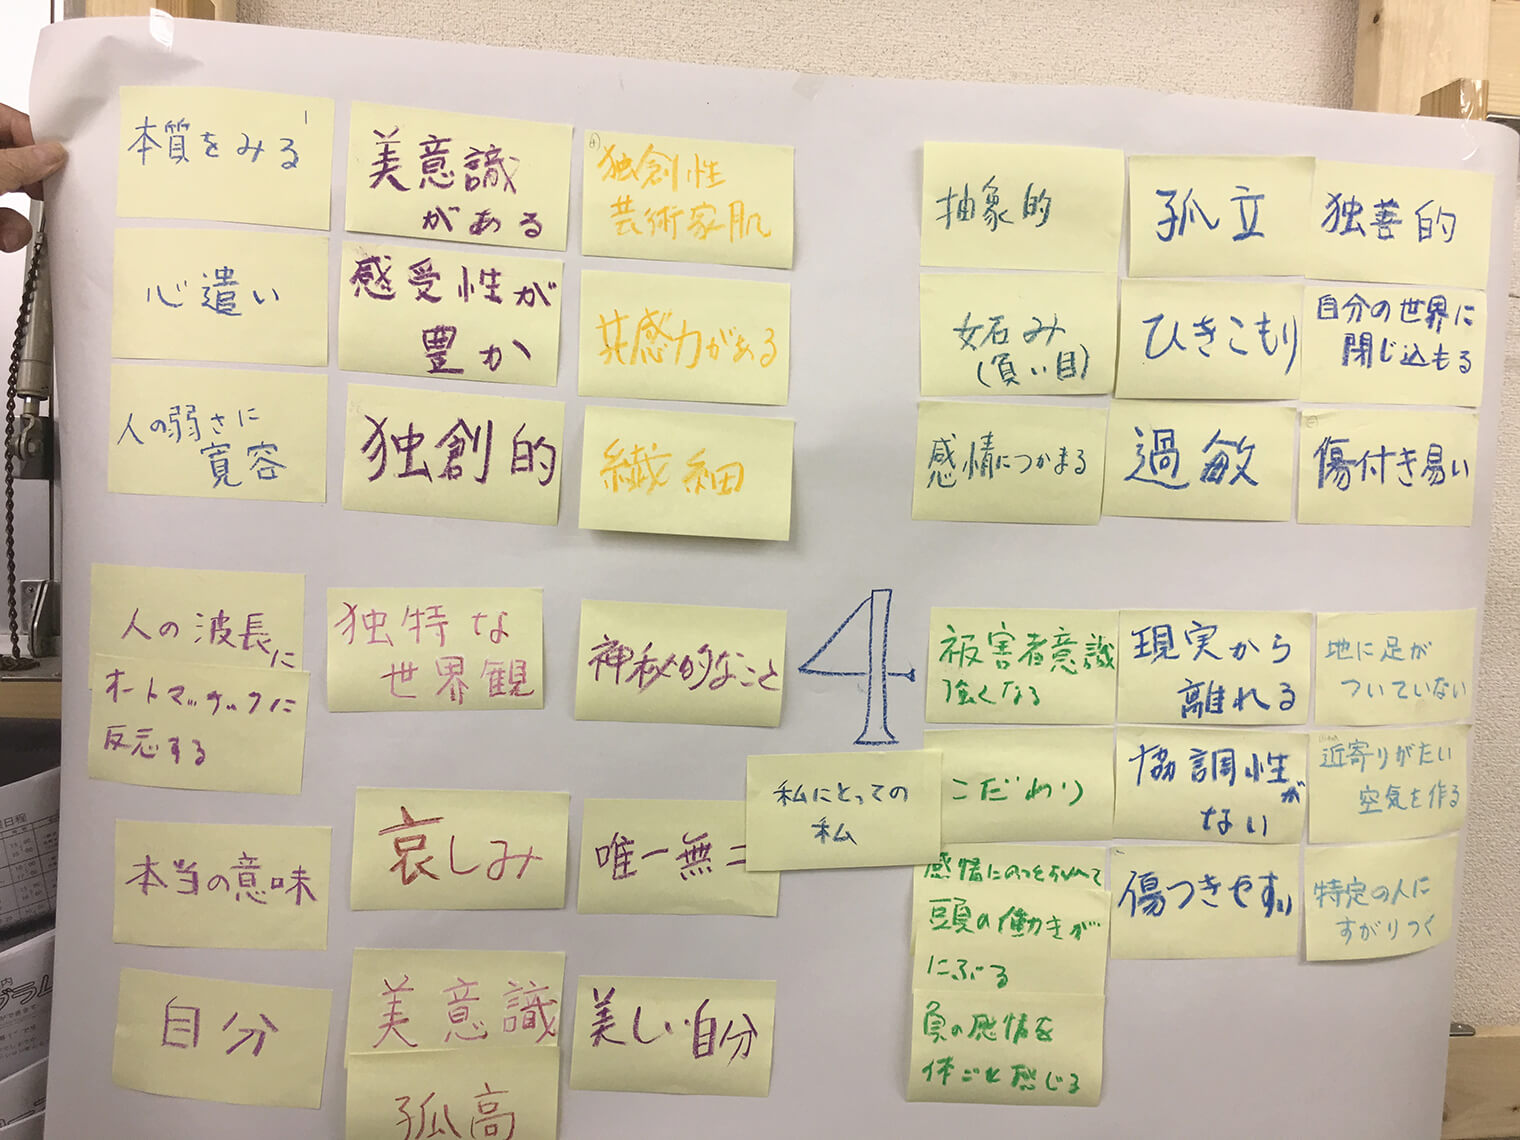 本質をみる
美意識
がある
独創性
芸術家肌
心遣い
感受性が
豊か
共感力がある
人の弱さに
寛容
独創的
繊細
抽象的
孤立
独善的
妬み
(負い目)
ひきこもり
自分の世界に
閉じ込もる
感情につかまる
過敏
傷付き易い
人の波長に
オートマッチックに
反応する
独特な
世界観
神秘的なこと
本当の意味
哀しみ
唯一無二
自分
美意識
孤高
美しい自分
4
私にとっての
私
被害者意識
強くなる
現実から
離れる
地に足が
ついていない
こだわり
協調性が
ない
近寄りがたい
空気を作る
頭の働きが
にぶる
傷つきやすい
特定の人に
すがりつく
負の感情を
体ごと感じる